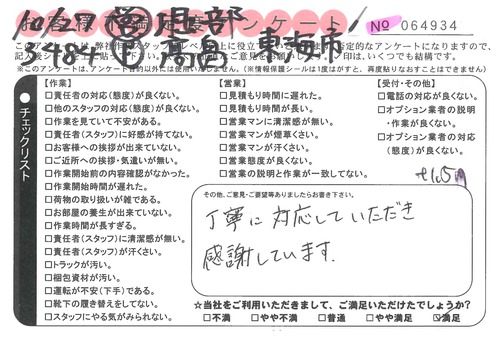 10/27
No 064934
3484
東海市
記入後シールを
※このアンケートは、アンケート目的以外には使用いたしません。(情報保護シールは1度はがすと、再度貼りなおすことはできません)
チェックリスト
【作業】
□責任者の対応(態度)が良くない。
□他のスタッフの対応(態度)が良くない。
□作業を見ていて不安がある。
□責任者(スタッフ)に好感が持てない。
□お客様への挨拶が出来ていない。
□ご近所への挨拶・気遣いが無い。
□作業開始前の内容確認がなかった。
□作業開始時間が遅れた。
□荷物の取り扱いが雑である。
□お部屋の養生が出来ていない。
□作業時間が長すぎる。
□責任者(スタッフ)に清潔感が無い。
□責任者(スタッフ)が汗くさい。
□トラックが汚い。
□梱包資材が汚い。
□運転が不安(下手)である。
□靴下の履き替えをしてない。
□スタッフにやる気がみられない。
【営業】
□見積もり時間に遅れた。
□見積もり時間が長い。
□営業マンに清潔感が無い。
□営業マンが煙草くさい。
□営業マンが汗くさい。
□営業態度が良くない。
□営業の説明と作業が一致してない。
【受付・その他】
□電話の対応が良くない。
□オプション業者の説明
・作業が良くない。
□オプション業者の対応
(態度)が良くない。
その他、ご意見・ご要望等ありましたらお書き下さい。
丁寧に対応していただき
感謝しています。
☆当社をご利用いただきまして、ご満足いただけたでしょうか?
□不満 □やや不満 □普通 □やや満足 ☑満足